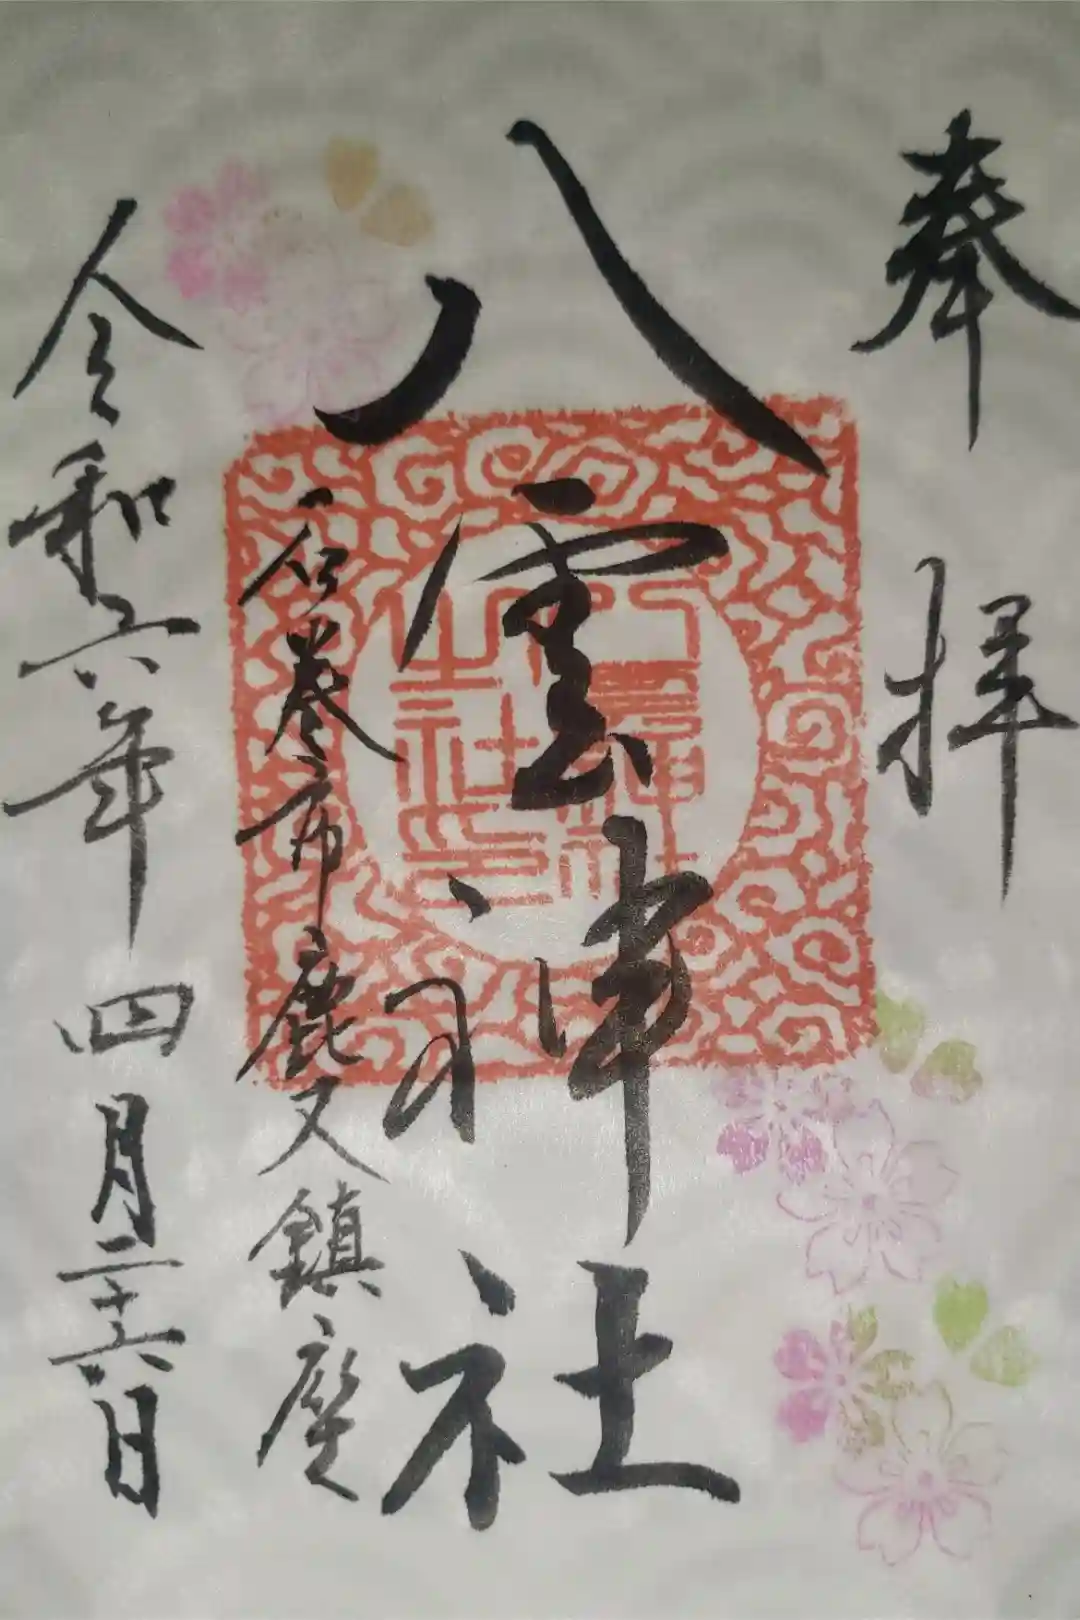 奉拝
八雲神社
石巻市鹿又鎮座
令和六年四月二十六日